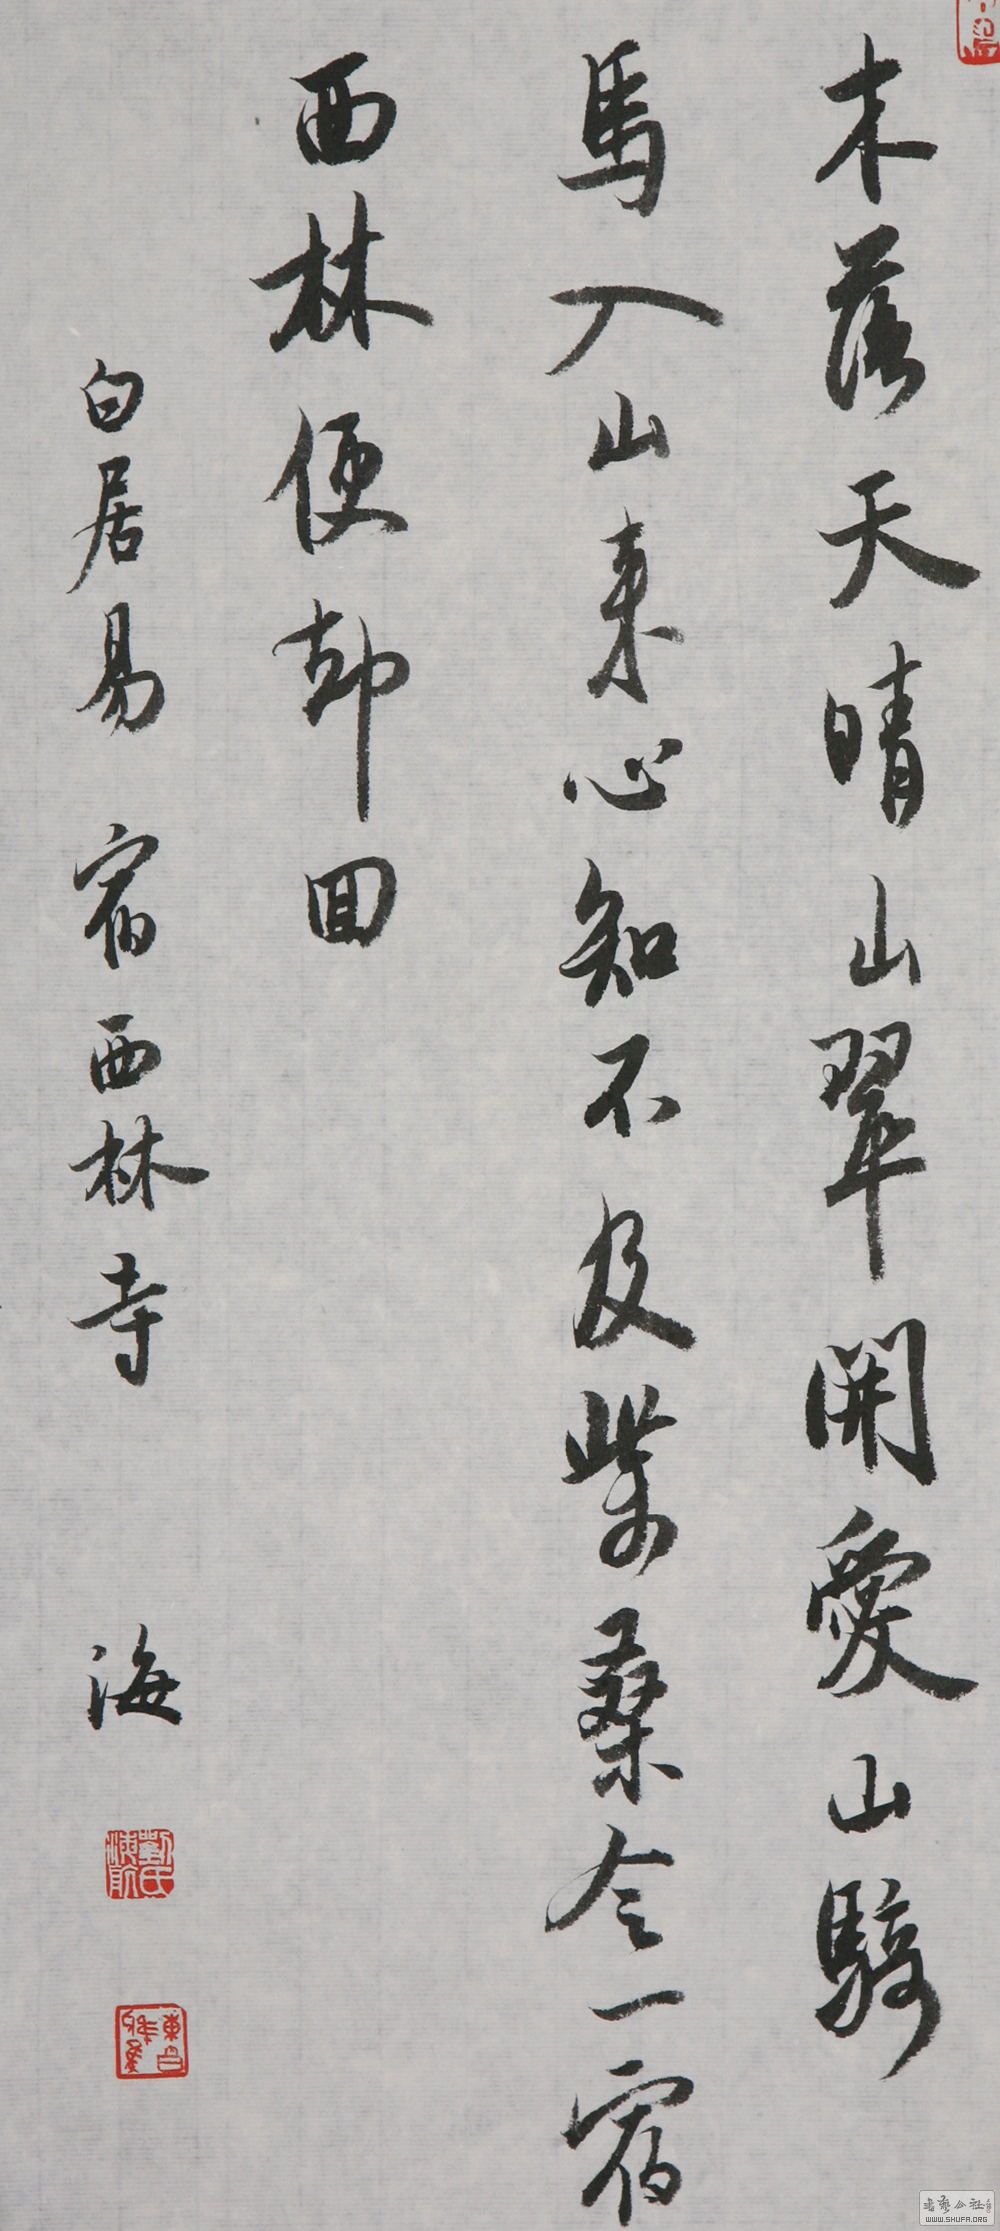 木落天晴山翠開愛山騎
馬入山來心知不及柴桑令一宿
西林便却回
白居易 宿西林寺 海
書藝公社
WWW.SHUFA.ORG